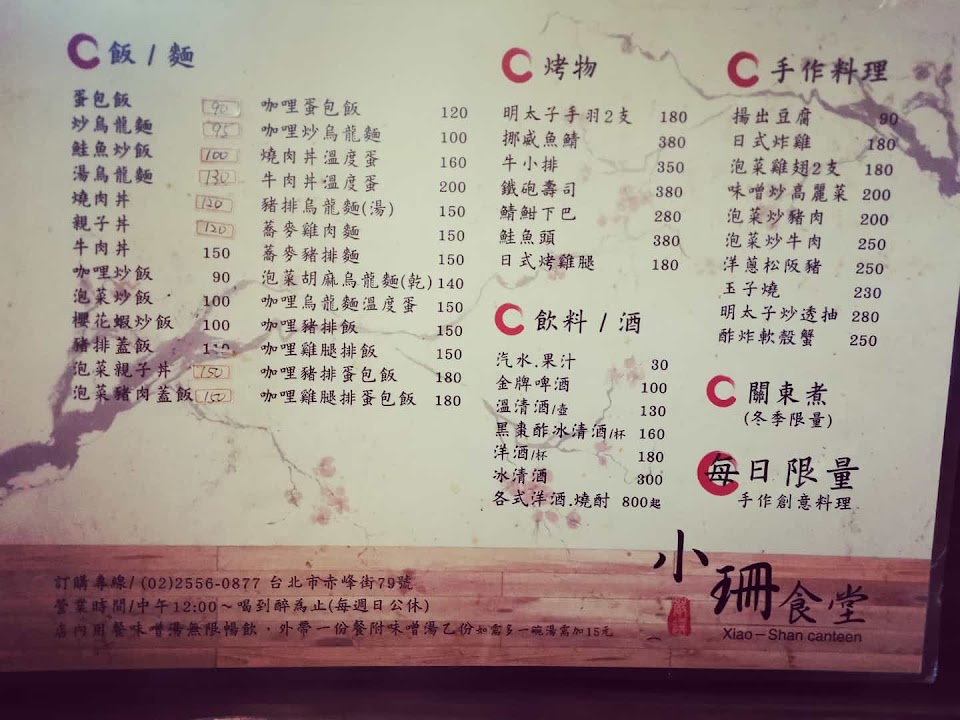 飯 / 麵
蛋包飯 90
炒烏龍麵 95
鮭魚炒飯 100
湯烏龍麵 130
燒肉丼 120
親子丼 120
牛肉丼 150
咖哩炒飯 90
泡菜炒飯 100
櫻花蝦炒飯 100
豬排蓋飯
泡菜親子丼 150
泡菜豬肉蓋飯 150
咖哩蛋包飯 120
咖哩炒烏龍麵 100
燒肉丼溫度蛋 160
牛肉丼溫度蛋 200
豬排烏龍麵(湯) 150
蕎麥雞肉麵 150
蕎麥豬排麵 150
泡菜胡麻烏龍麵(乾) 140
咖哩烏龍麵溫度蛋 150
咖哩豬排飯 150
咖哩雞腿排飯 150
咖哩豬排蛋包飯 180
咖哩雞腿排蛋包飯 180
烤物
明太子手羽2支 180
挪威魚鯖 380
牛小排 350
鐵砲壽司 380
鯖魽下巴 280
鮭魚頭 380
日式烤雞腿 180
飲料 / 酒
汽水.果汁 30
金牌啤酒 100
溫清酒/壺 130
黑棗酢冰清酒/杯 160
洋酒/杯 180
冰清酒 300
各式洋酒.燒酎 800起
手作料理
揚出豆腐 90
日式炸雞 180
泡菜雞翅2支 180
味噌炒高麗菜 200
泡菜炒豬肉 200
泡菜炒牛肉 250
洋蔥松阪豬 250
玉子燒 230
明太子炒透抽 280
酢炸軟殼蟹 250
關東煮
(冬季限量)
每日限量
手作創意料理
訂購專線/ (02)2556-0877 台北市赤峰街79號
營業時間/中午12:00～喝到醉為止(每週日公休)
店內用餐味噌湯無限暢飲，外帶一份餐附味噌湯乙份如需多一碗湯需加15元
小珊食堂
Xiao-Shan canteen